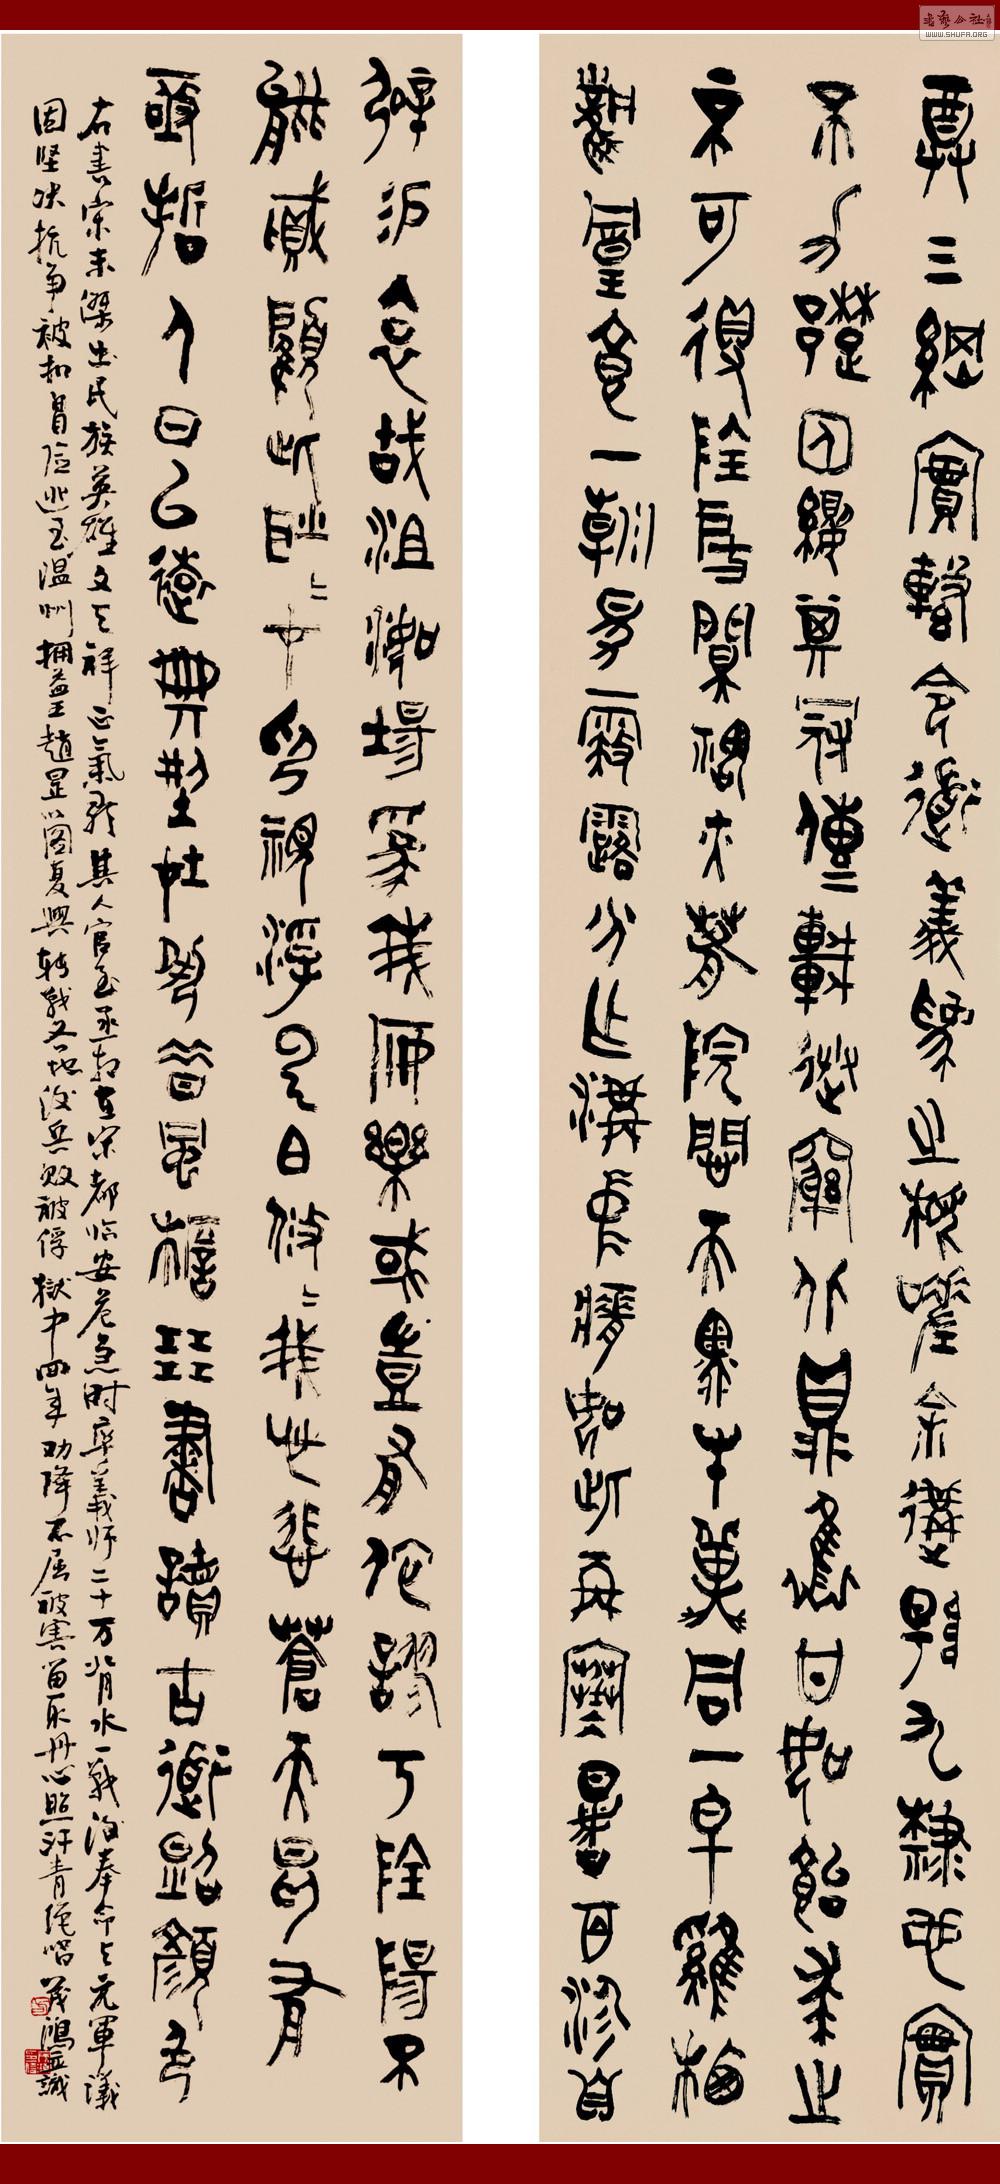 尊三綱實繫命道義為之根嗟余遘陽九隸也實
不力楚囚纓其冠傳車送窮北鼎鑊甘如飴求之
不可得陰房闃鬼火春院閟天黑牛驥同一皂雞栖
鳳凰食一朝蒙霧露分作溝中瘠如此再寒暑百沴自
辟易哀哉沮洳場為我安樂國豈有他繆巧陰陽不
能賊顧此耿耿在仰視浮雲白悠悠我心悲蒼天曷有
極哲人日已遠典刑在夙昔風檐展書讀古道照顏色
右書宋末傑出民族英雄文天祥正氣歌其人官至丞相在宋都臨安危急時率義師二十万背水一戰後奉命与元軍議
因坚決抗爭被扣冒險逃至溫州擁益王趙昰以图复興轉戰各地後兵敗被俘獄中四年劝降不屈被害留取丹心照汗青絕唱茂鴻並識
書藝公社
WWW.SHUFA.ORG